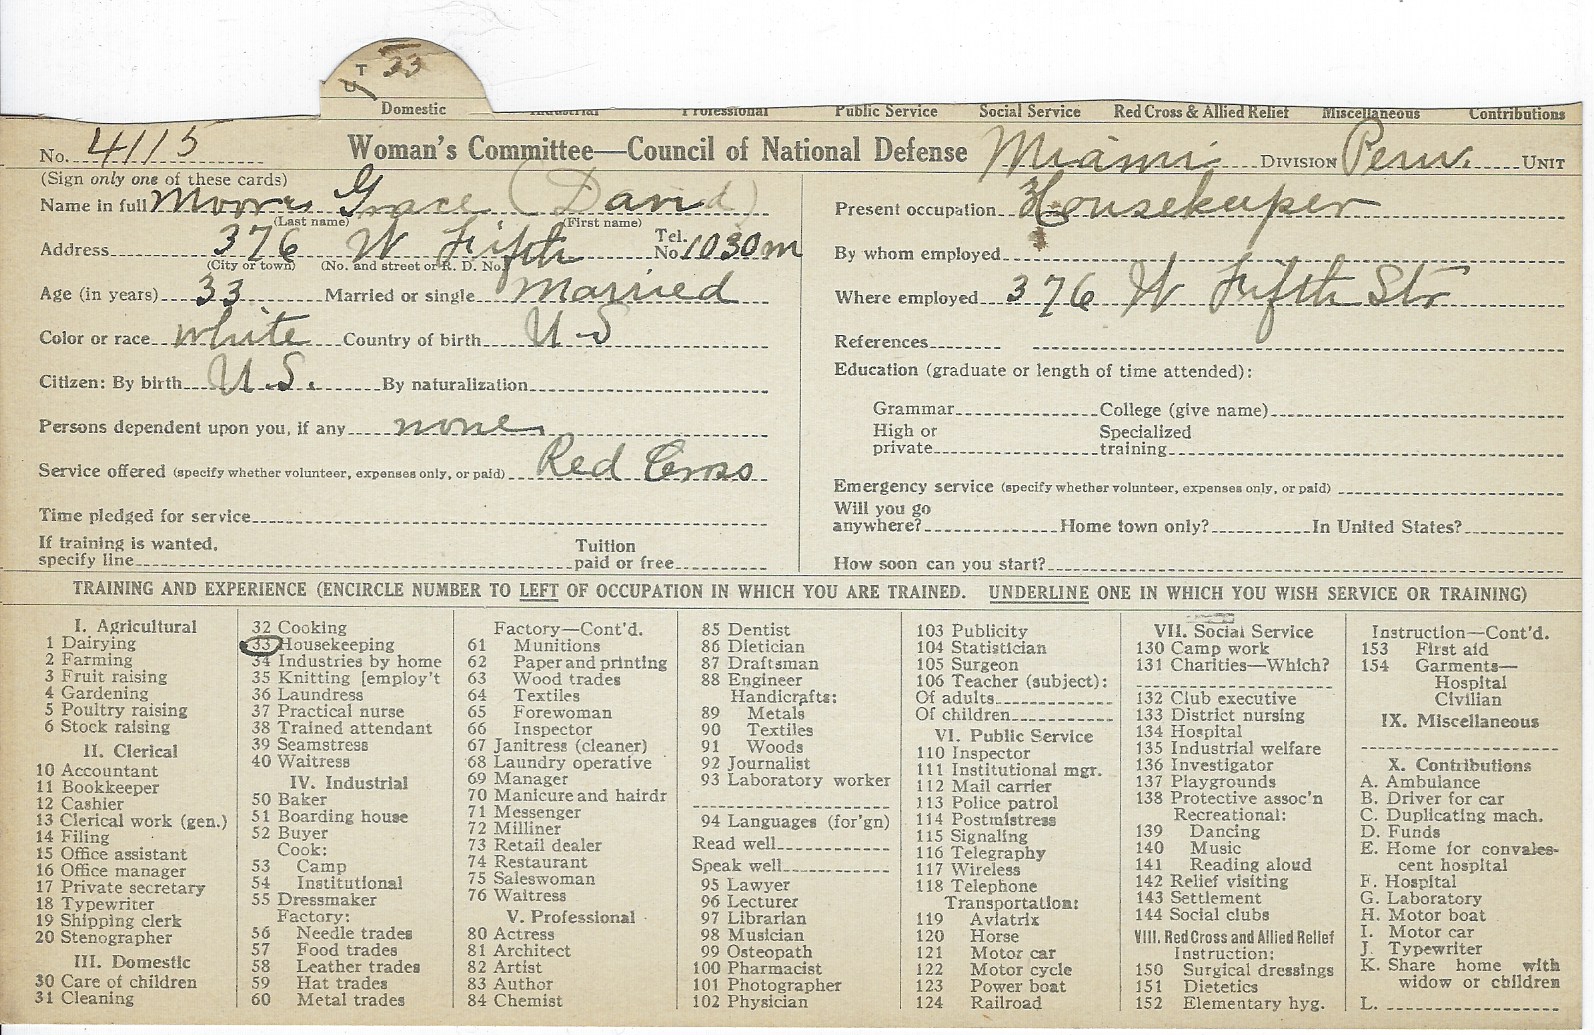 T 33
U
Domestic Industrial Professional Public Service Social Service Red Cross & Allied Relief Miscellaneous Contributions
No. 4115 Woman's Committee—Council of National Defense Miami DIVISION Peru. UNIT
(Sign only one of these cards)
Name in full Moorris Grace (David)
(Last name) (First name)
Address 376 W Fifth Tel. No. 1030m
(City or town) (No. and street or R. D. No.)
Age (in years) 33 Married or single Married
Color or race white Country of birth U S
Citizen: By birth U.S. By naturalization
Persons dependent upon you, if any none
Service offered (specify whether volunteer, expenses only, or paid) Red Cross
Time pledged for service
If training is wanted,
specify line Tuition paid or free
Present occupation Housekeeper
By whom employed
Where employed 376 W Fifth Str
References
Education (graduate or length of time attended):
Grammar College (give name)
High or private Specialized training
Emergency service (specify whether volunteer, expenses only, or paid)
Will you go
anywhere? Home town only? In United States?
How soon can you start?
TRAINING AND EXPERIENCE (ENCIRCLE NUMBER TO LEFT OF OCCUPATION IN WHICH YOU ARE TRAINED. UNDERLINE ONE IN WHICH YOU WISH SERVICE OR TRAINING)
I. Agricultural
1 Dairying
2 Farming
3 Fruit raising
4 Gardening
5 Poultry raising
6 Stock raising
II. Clerical
10 Accountant
11 Bookkeeper
12 Cashier
13 Clerical work (gen.)
14 Filing
15 Office assistant
16 Office manager
17 Private secretary
18 Typewriter
19 Shipping clerk
20 Stenographer
III. Domestic
30 Care of children
31 Cleaning
32 Cooking
33 Housekeeping
34 Industries by home
35 Knitting [employ't
36 Laundress
37 Practical nurse
38 Trained attendant
39 Seamstress
40 Waitress
IV. Industrial
50 Baker
51 Boarding house
52 Buyer
Cook:
53 Camp
54 Institutional
55 Dressmaker
Factory:
56 Needle trades
57 Food trades
58 Leather trades
59 Hat trades
60 Metal trades
Factory—Cont'd.
61 Munitions
62 Paper and printing
63 Wood trades
64 Textiles
65 Forewoman
66 Inspector
67 Janitress (cleaner)
68 Laundry operative
69 Manager
70 Manicure and hairdr
71 Messenger
72 Milliner
73 Retail dealer
74 Restaurant
75 Saleswoman
76 Waitress
V. Professional
80 Actress
81 Architect
82 Artist
83 Author
84 Chemist
85 Dentist
86 Dietician
87 Draftsman
88 Engineer
Handicrafts:
89 Metals
90 Textiles
91 Woods
92 Journalist
93 Laboratory worker
94 Languages (for'gn)
Read well
Speak well
95 Lawyer
96 Lecturer
97 Librarian
98 Musician
99 Osteopath
100 Pharmacist
101 Photographer
102 Physician
103 Publicity
104 Statistician
105 Surgeon
106 Teacher (subject):
Of adults
Of children
VI. Public Service
110 Inspector
111 Institutional mgr.
112 Mail carrier
113 Police patrol
114 Postmistress
115 Signaling
116 Telegraphy
117 Wireless
118 Telephone
Transportation:
119 Aviatrix
120 Horse
121 Motor car
122 Motor cycle
123 Power boat
124 Railroad
VII. Social Service
130 Camp work
131 Charities—Which?
132 Club executive
133 District nursing
134 Hospital
135 Industrial welfare
136 Investigator
137 Playgrounds
138 Protective assoc'n
Recreational:
139 Dancing
140 Music
141 Reading aloud
142 Relief visiting
143 Settlement
144 Social clubs
VIII. Red Cross and Allied Relief
Instruction:
150 Surgical dressings
151 Dietetics
152 Elementary hyg.
Instruction—Cont'd.
153 First aid
154 Garments—
Hospital
Civilian
IX. Miscellaneous
X. Contributions
A. Ambulance
B. Driver for car
C. Duplicating mach.
D. Funds
E. Home for convales-
cent hospital
F. Hospital
G. Laboratory
H. Motor boat
I. Motor car
J. Typewriter
K. Share home with
widow or children
L.